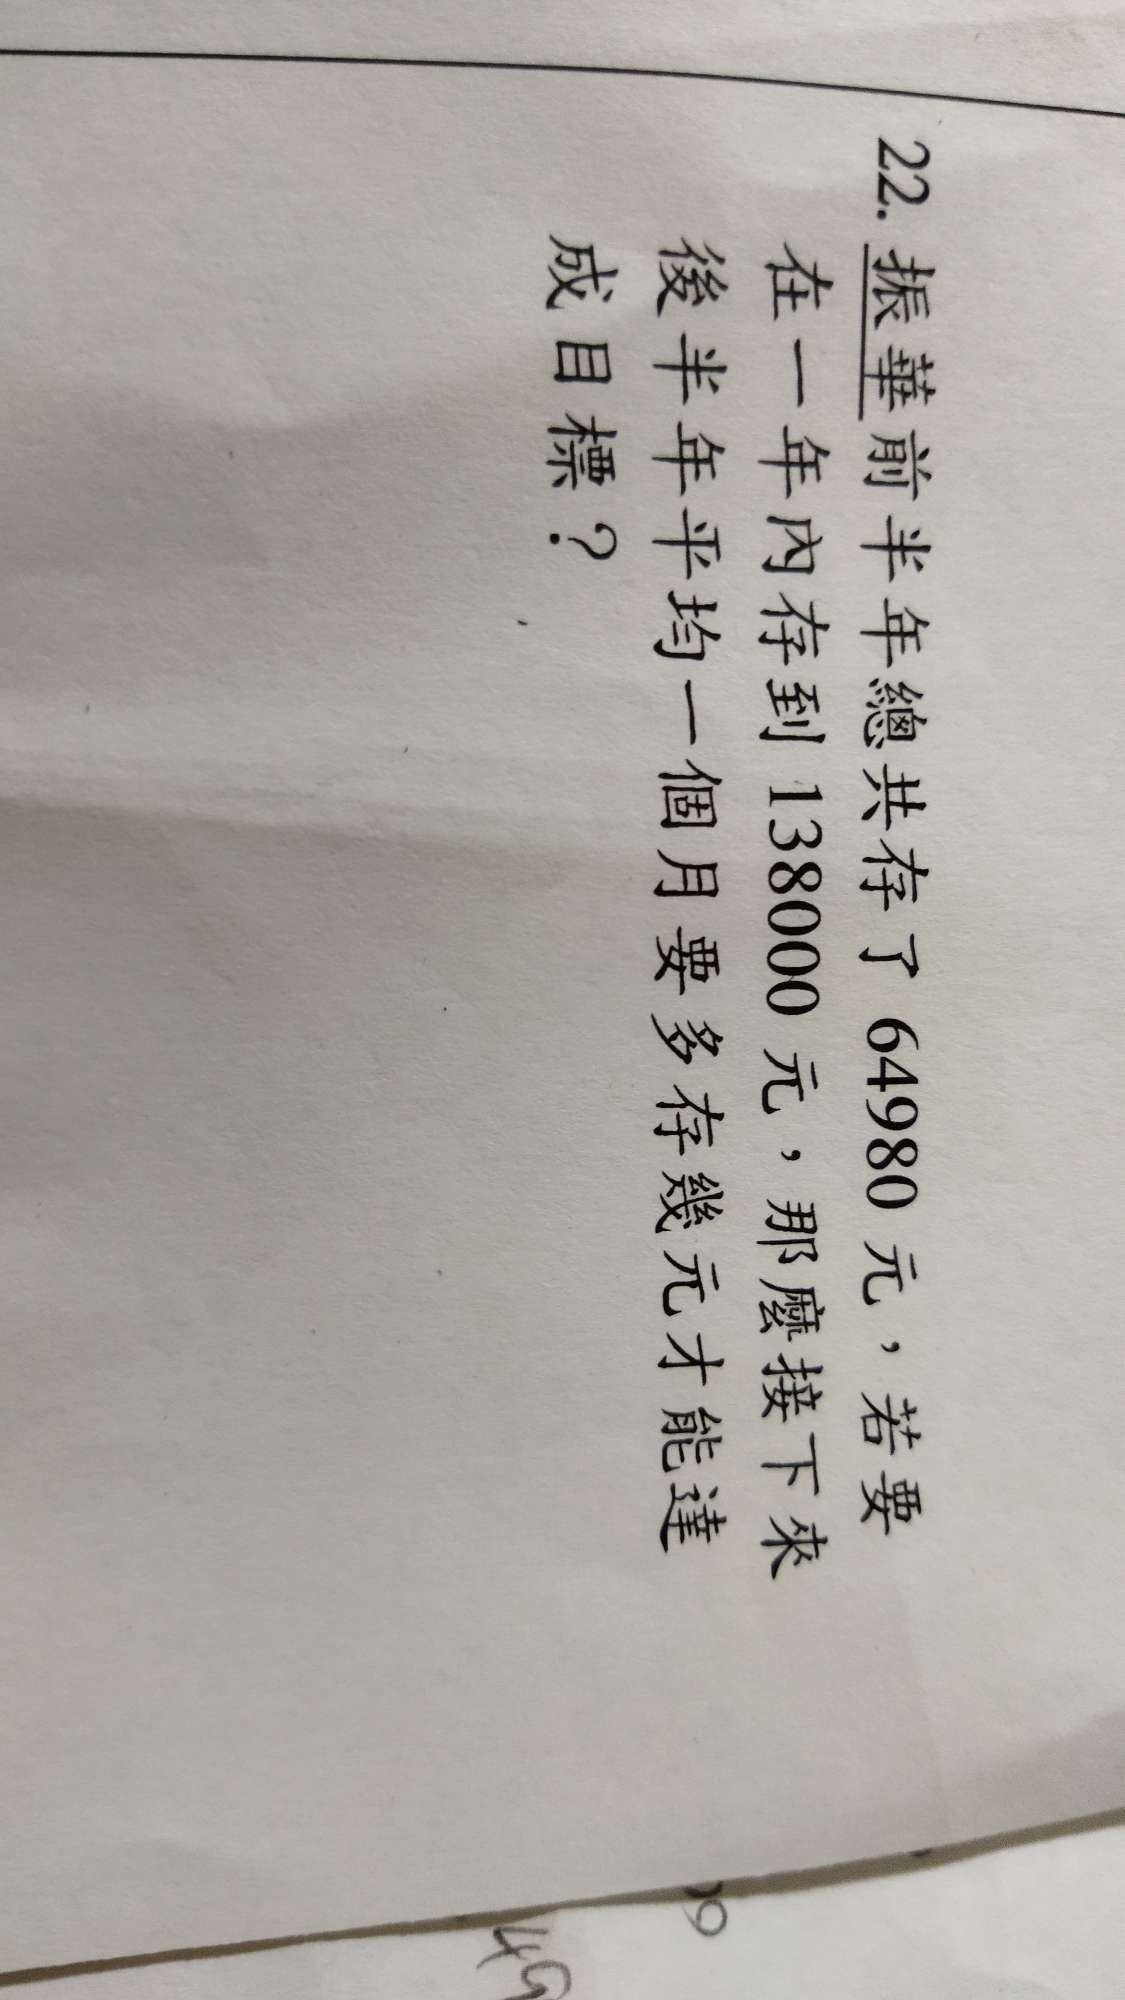 22. 振華前半年總共存了 64980 元，若要
在一年內存到 138000 元，那麼接下來
後半年平均一個月要多存幾元才能達
成目標？